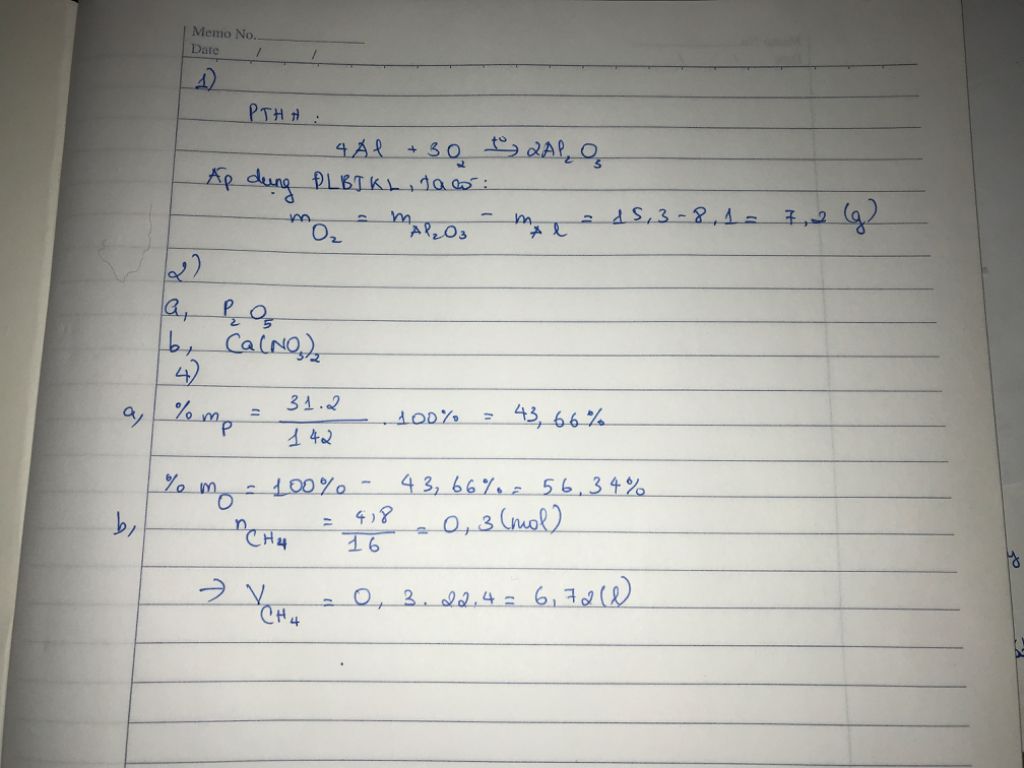 Memo No.
Date / /
1)
PTHH :
4Al + 3O₂ t°→ 2Al₂O₃
Áp dụng ĐLBTKL, ta có :
m O₂ = m Al₂O₃ - m Al = 15,3 - 8,1 = 7,2 (g)
2)
a, P₂O₅
b, Ca(NO₃)₂
4)
a, % m P = 31.2 / 142 . 100% = 43,66%
% m O = 100% - 43,66% = 56,34%
b, n CH₄ = 4,8 / 16 = 0,3 (mol)
→ V CH₄ = 0,3.22,4 = 6,72 (l)